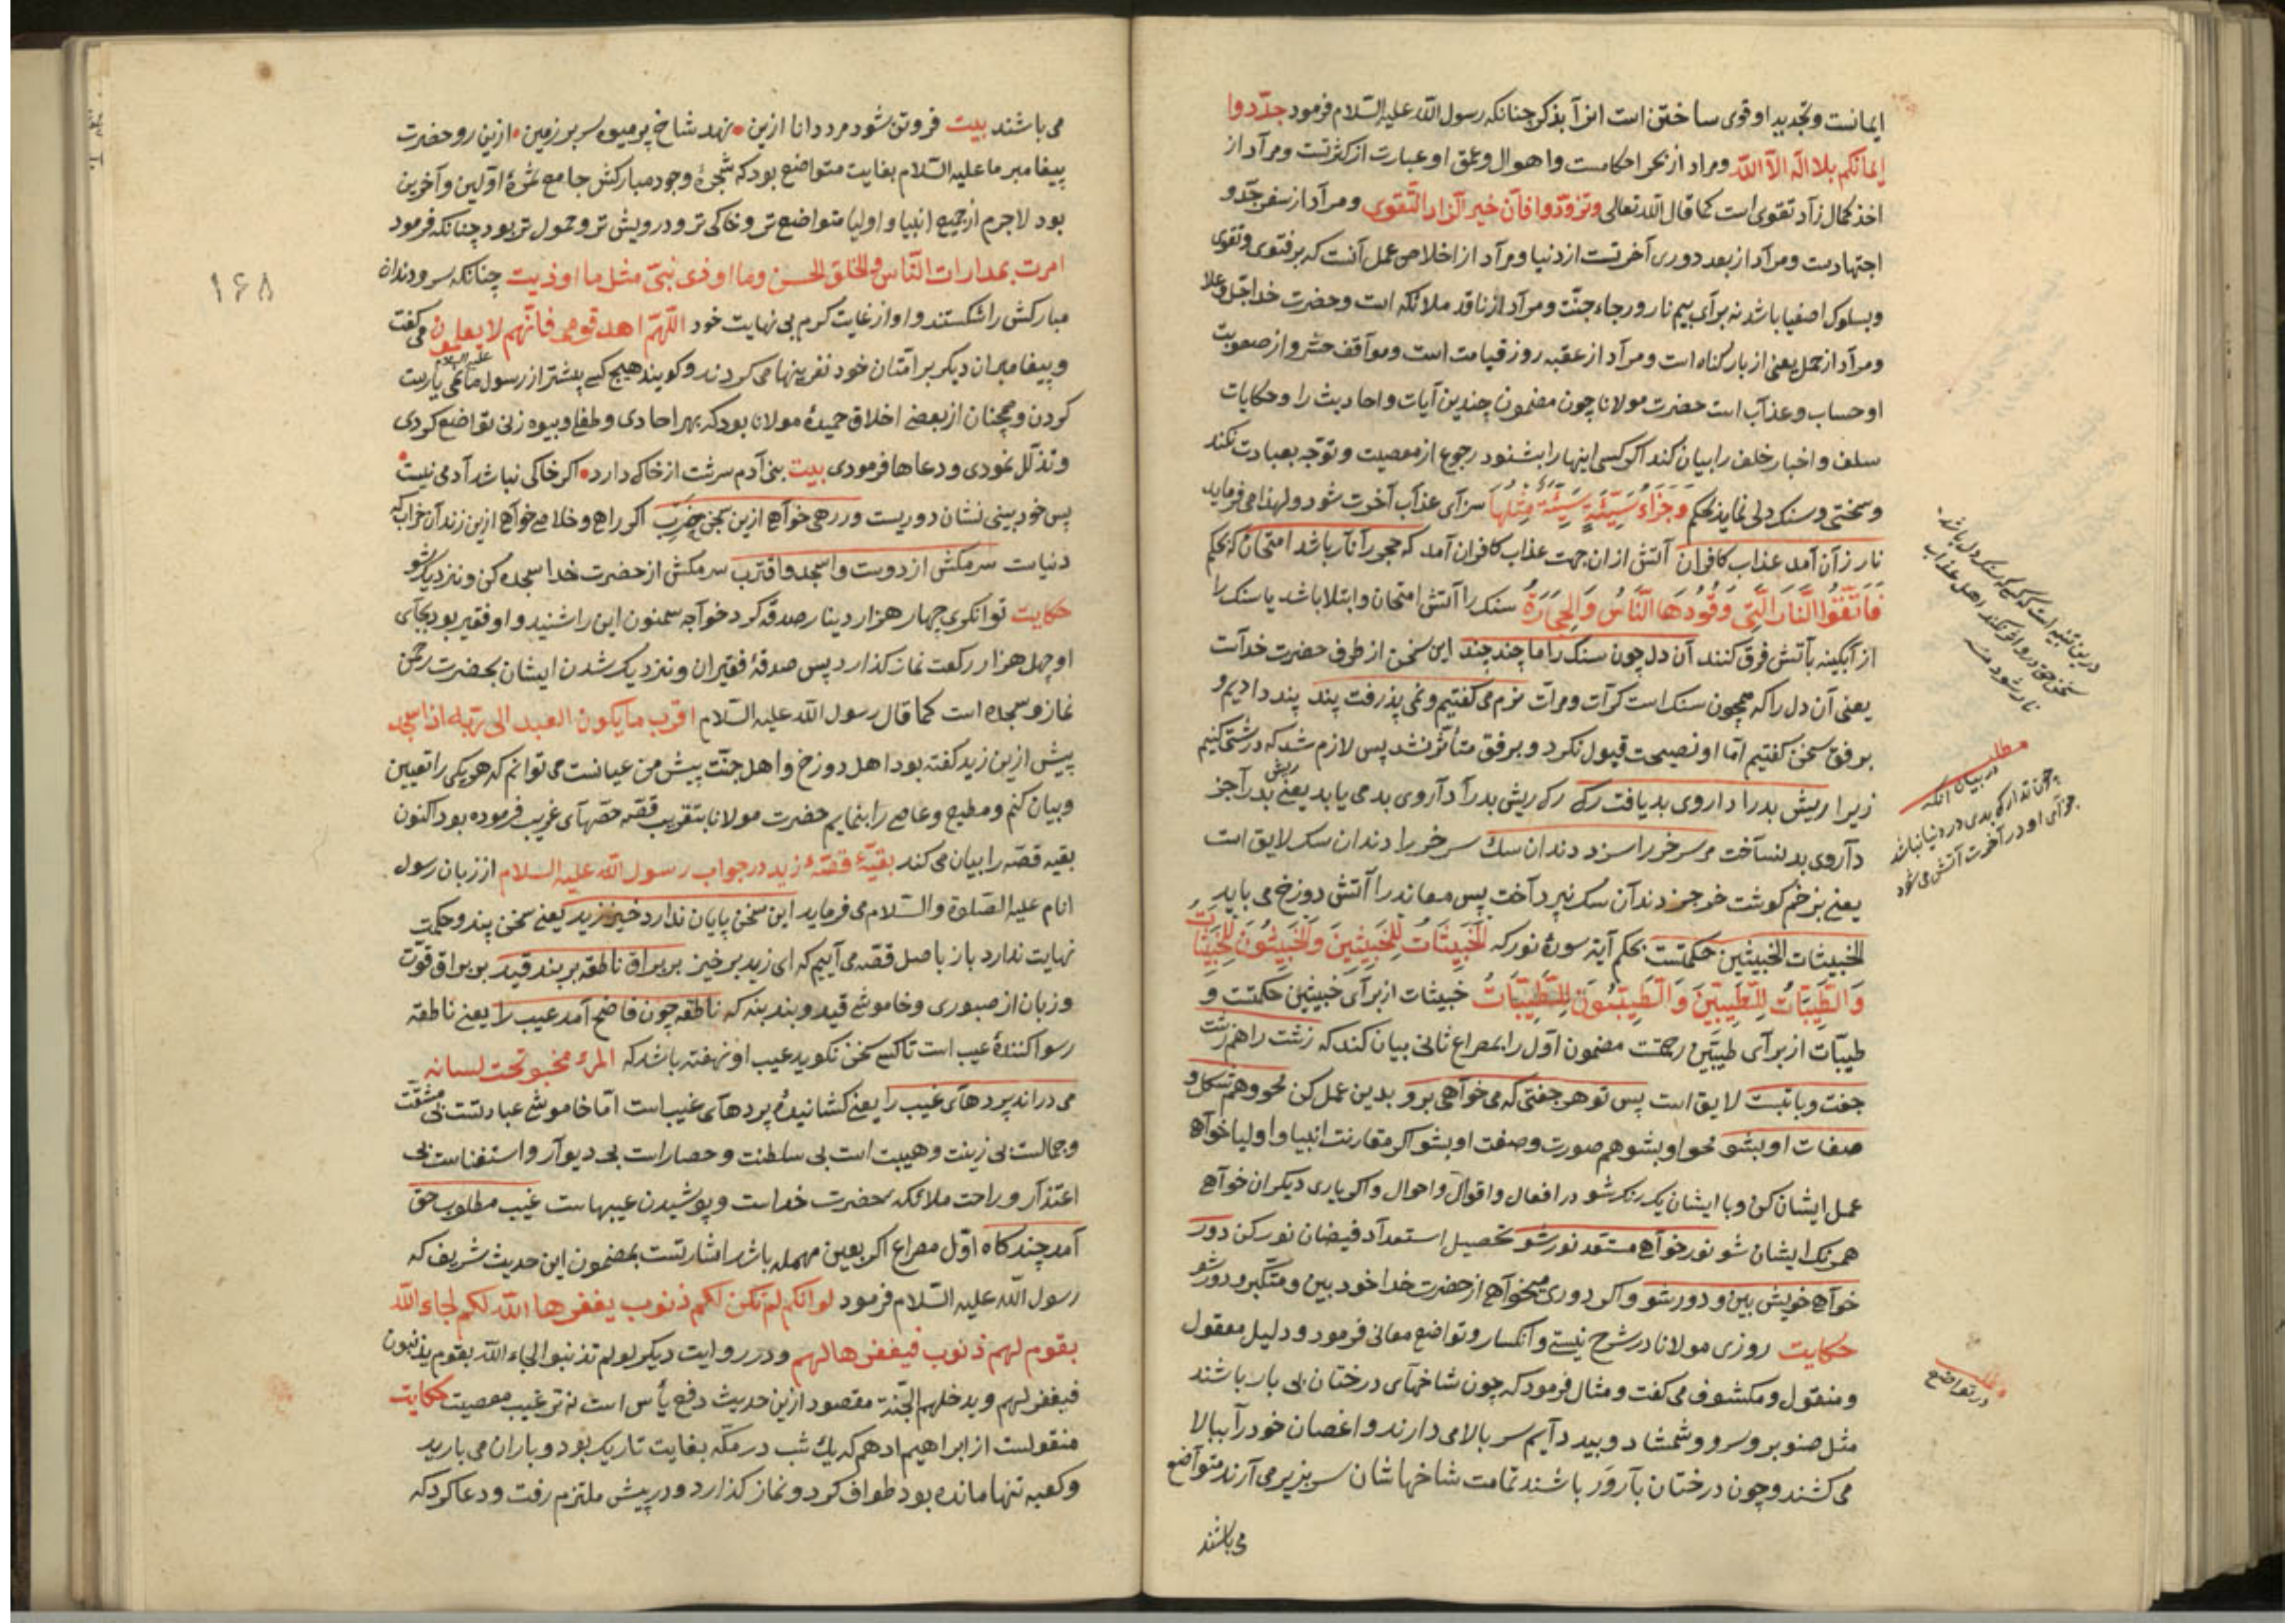 ایمانست وتجدید او قوی ساختن است انرا بذکر چنانکه رسول الله علیه السّلام فرمود جدّدوا
إیمانکم بلا اله الاّ الله ومراد از بحر احکامست واهوال وعمق او عبارت از کثرتست ومرآد از
اخذ کمال زآد تقوی است کما قال الله تعالی وتزوّدوا فانّ خیر الزّاد التّقوی ومرآد از سفر جدّ و
اجتهادست ومرآد از بعد دوری آخرتست از دنیا ومرآد از اخلاص عمل آنست که بر فتوی وتقوی
وبسلوک اصفیا باشد نه برآی بیم نار ورجاء جنّت ومرآد از ناقد ملائکه است وحضرت خدا جلّ وعلا
ومرآد از حمل یعنی از بار کناه است ومرآد از عقبه روز قیامت است وموآقف حشر واز صعوبت
او حساب وعذآب است حضرت مولانا چون مضمون چندین آیات واحادیث را وحکایات
سلف واخبار خلف را بیان کند اکر کسی اینها را بشنود رجوع از معصیت وتوجّه بعبادت نکند
وسختی وسنک دلی نماید بحکم وَجَزَاءُ سَیِّئَةٍ سَیِّئَةٌ مِثْلُهَا سزآی عذآب آخرت شود ولهذا می فرماید
نار زآن آمد عذاب کافران آتش ازان جهت عذاب کافران آمد که حجر را نار باشد امتحان که بحکم
فَاتَّقُوا النَّارَ الَّتِی وَقُودُهَا النَّاسُ وَالْحِجَارَةُ سنک را آتش امتحان وابتلا باشد یا سنک را
از آبکینه بآتش فرق کنند آن دل چون سنک را ما چند چند این سخن از طرف حضرت خدآست
یعنی آن دل را که همچون سنک است کرّات ومرات نرم می کفتیم ونمی پذرفت پند پند دادیم و
برفق سخن کفتیم امّا او نصیحت قبول نکرد وبرفق متأثر نشد پس لازم شد که درشتی کنیم
زیرا ریش بد را داروی بد یافت رک رک ریش بد را دآروی بد می یابد یعنی ریش بد را جز
دآروی بد نسآخت مر سر خر را سزد دندان سک سر خر را دندان سک لایق است
یعنی بزخم کوشت خر جز دندآن سک نپردآخت پس معاند را آتش دوزخ می باید
الخبیثات الخبیثین حکمتست بحکم آیۀ سورۀ نور که اَلْخَبِیثَاتُ لِلْخَبِیثِینَ وَالْخَبِیثُونَ لِلْخَبِیثَاتِ
وَالطَّیِّبَاتُ لِلطَّیِّبِینَ وَالطَّیِّبُونَ لِلطَّیِّبَاتِ خبیثات از برآی خبیثین حکمتست و
طیبّات از برآی طیبّین رحمتست مضمون اوّل را بمصراع ثانی بیان کند که زشت را هم زشت
جفت وبابتست لایق است پس تو هر جفتی که می خوآهی برو بدین عمل کن محو وهم شکل و
صفات او بشو محو او بشو هم صورت وصفت او بشو اکر مقارنت انبیا واولیا خوآهی
عمل ایشان کن وبا ایشان یک رنک شو در افعال واقوال واحوال واکر یاری دیکران خوآهی
همرنک ایشان شو نور خوآهی مستعد نور شو تحصیل استعدآد فیضان نور کن دور
خوآهی خویش بین ودور شو واکر دوری میخوآهی از حضرت خدا خود بین ومتکبر ودور شو
حکایت روزی مولانا در شرح نیستی وانکسار وتواضع معانی فرمود ودلیل معقول
ومنقول ومکشوف می کفت ومثال فرمود که چون شاخهآی درختان بی بار باشند
مثل صنوبر وسرو وشمشاد وبید دآیم سر بالا می دارند واغصان خود را ببالا
می کشند وچون درختان بآروَر باشند تمامت شاخهاشان سر بزیر می آرند متوآضع
می باشند
درین تنبیه است که هر کرا سنک دل باشد
سخن حق درو اثر نکند اهل عذاب
نار شود منه
مطلب
در بیان آنکه
چون تدارک بدی در دنیا نباشد
جزآی او در آخرت آتش می شود
مطلب
در تواضع
می باشند بیت فروتن شود مرد دانا ازین • نهد شاخ پر میوه سر بر زمین • ازین رو حضرت
پیغامبر ما علیه السّلام بغایت متواضع بود که شجرۀ وجود مبارکش جامع ثمرۀ اوّلین وآخرین
بود لاجرم از جمیع انبیا واولیا متواضع تر وخاکی تر ودرویش تر وحمول تر بود چنانکه فرمود
امرت بمدارات النّاس والخلق الحسن وما اوذی نبیّ مثل ما اوذیت چنانکه سر ودندان
مبارکش را شکستند واو از غایت کرم بی نهایت خود اللّهمّ اهد قومی فانّهم لا یعلمون می کفت
وپیغامبران دیکر بر امّتان خود نفرینها می کردند وکویند هیچ کسی پیشتر از رسول ما علیه السلام نمی یارست
کردن وهمچنان از بعضی اخلاق حمیدۀ مولانا بود که بهر احادی وطفلی وبیوه زنی تواضع کردی
وتذلّل نمودی ودعاها فرمودی بیت بنی آدم سرشت از خاک دارد • اکر خاکی نباشد آدمی نیست •
پس خود بینی نشان دوریست ور رهی خوآهی ازین سجن خرب اکر راهی وخلاصی خوآهی ازین زندآن خراب که
دنیاست سر مکش از دوست واسجد واقترب سر مکش از حضرت خدا سجده کن ونزدیک شو
حکایت توانکری چهار هزار دینار صدقه کرد خوآجه سمنون این را شنید واو فقیر بود بجآی
او چهل هزار رکعت نماز کذارد پس صدقۀ فقیران ونزدیک شدن ایشان بحضرت رحمن
نماز وسجده است کما قال رسول الله علیه السّلام اقرب ما یکون العبد الی ربّه اذا سجد
پیش ازین زید کفته بود اهل دوزخ واهل جنّت پیش من عیانست می توانم که هر یکی را تعیین
وبیان کنم ومطیع وعاصی را بنمایم حضرت مولانا بتقریب قصّه حصّهآی غریب فرموده بود اکنون
بقیه قصّه را بیان می کند بقیّۀ قصّۀ زید در جواب رسول الله علیه السلام از زبان رسول
انام علیه الصّلوة والسّلام می فرماید این سخن پایان ندارد خیز زید یعنی سخن پند وحکمت
نهایت ندارد باز باصل قصّه می آییم که ای زید بر خیز بر براق ناطقه بر بند قید بر براق قوّت
وزبان از صبوری وخاموشی قید وبند بنه که ناطقه چون فاضح آمد عیب را یعنی ناطقه
رسوا کنندۀ عیب است تا کسی سخن نکوید عیب او نهفته باشد که المرء مخبو تحت لسانه
می دراند پردهآی غیب را یعنی کشانیدۀ پردهآی غیب است امّا خاموشی عبادتست بی مشقّت
وجمالست بی زینت وهیبت است بی سلطنت وحصار است بی دیوآر واستغناست بی
اعتذآر وراحت ملائکه حضرت خداست وپوشیدن عیبهاست غیب مطلوب حق
آمد چند کاه اوّل مصراع اکر بعین مهمله باشد اشارتست بمضمون این حدیث شریف که
رسول الله علیه السّلام فرمود لو انّکم لم تکن لکم ذنوب یغفرها الله لکم لجاء الله
بقوم لهم ذنوب فیغفرها لهم ودر روایت دیکر لو لم تذنبوا لجاء الله بقوم یذنبون
فیغفر لهم ویدخلهم الجّنة مقصود ازین حدیث دفع یأس است نه ترغیب معصیت حکایت
منقولست از ابراهیم ادهم که یک شب در مکّه بغایت تاریک بود وباران می بارید
وکعبه تنها مانده بود طواف کرد ونماز کذارد ودر پیش ملتزم رفت ودعا کرد که
۱۶۸